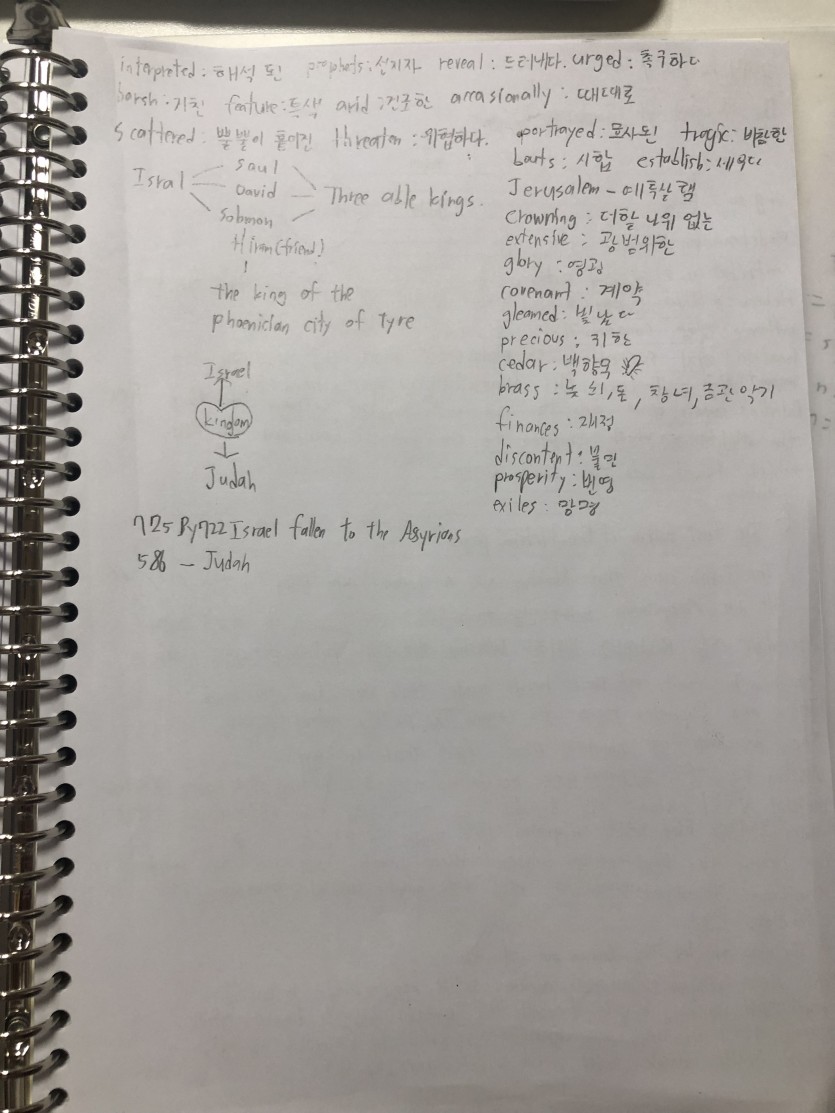 interpreted : 해석 된 prophets : 선지자 reveal : 드러내다. urged : 촉구하다
harsh : 거친 feature : 특색 arid : 건조한 occasionally : 때때로
scattered : 뿔뿔이 흩어진 threaten : 위협하다. portrayed : 묘사된 tragic : 비참한
bouts : 시합 establish : 세우다
Isral
Saul
David
Solomon
Three able kings.
Hiram (friend)
the king of the
phoenician city of Tyre
Israel
kingdom
Judah
725 By 722 Israel fallen to the Asyrians
586 – Judah
Jerusalem – 예루살렘
Crowning : 더할 나위 없는
extensive : 광범위한
glory : 영광
covenant : 계약
gleamed : 빛나다
precious : 귀한
cedar : 백향목
brass : 놋쇠, 돈, 창녀, 금관악기
finances : 재정
discontent : 불만
prosperity : 번영
exiles : 망명